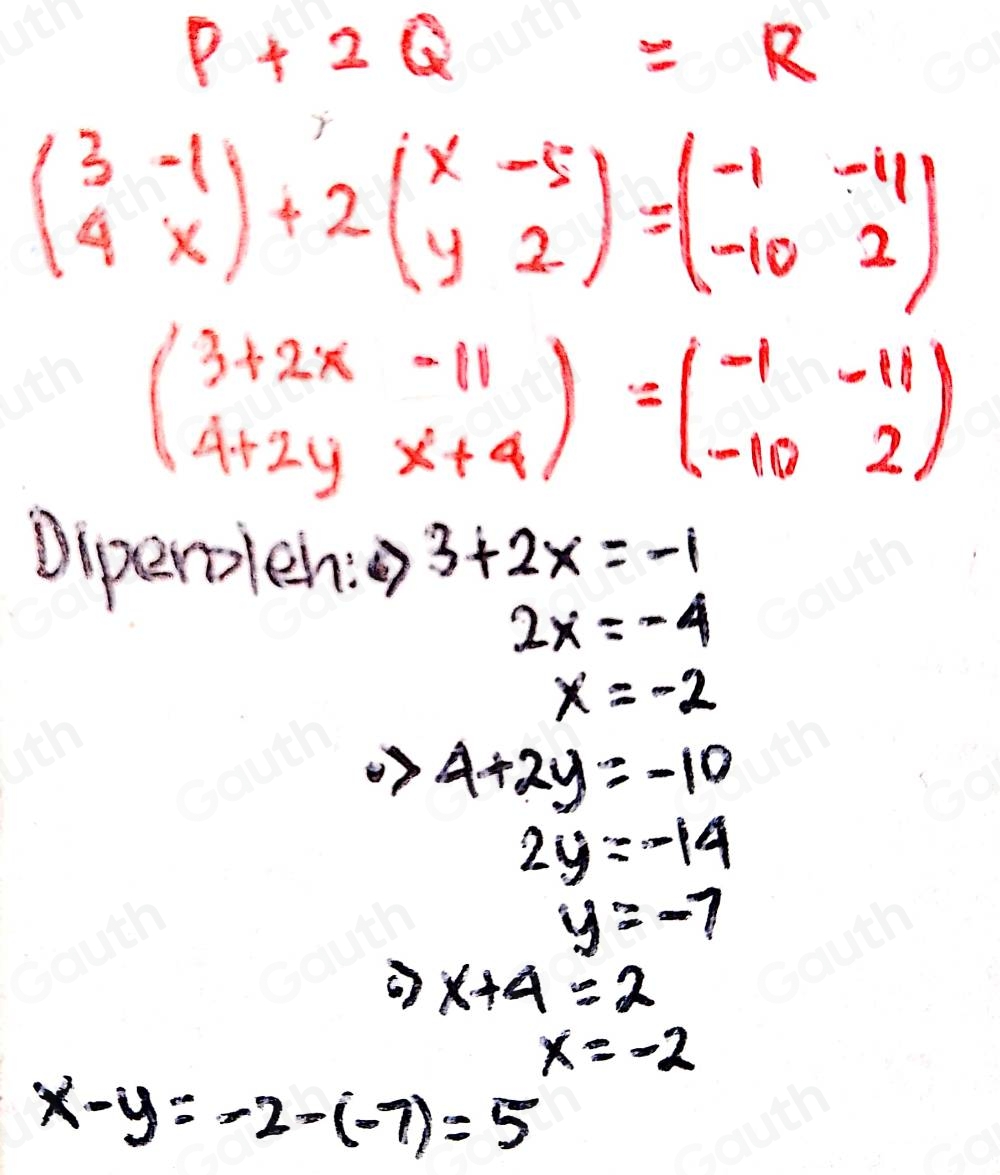 P + 2 Q = R
(3 -1) + 2 (x -5) = (-1 -11)
(4 x) (y 2) (-10 2)
(3+2x -11) = (-1 -11)
(4+2y x+4) (-10 2)
Diperoleh: •> 3+2x = -1
2x = -4
x = -2
•> 4+2y = -10
2y = -14
y = -7
•> x+4 = 2
x = -2
x-y = -2-(-7) = 5